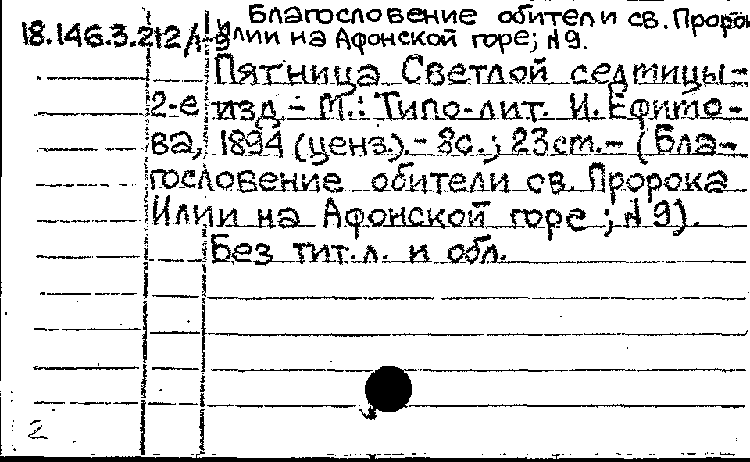 Благословение обители св. Проро
18.146.3.212/1-9 Илии на Афонской горе; №9.
Пятница Светлой седмицы-
2-е изд.- М.: Типо-лит. И. Ефимо-
ва, 1894 (ценз.).- 8с.; 23см.- (Бла-
гословение обители св. Пророка
Илии на Афонской горе; №9).
Без тит.л. и обл.
2